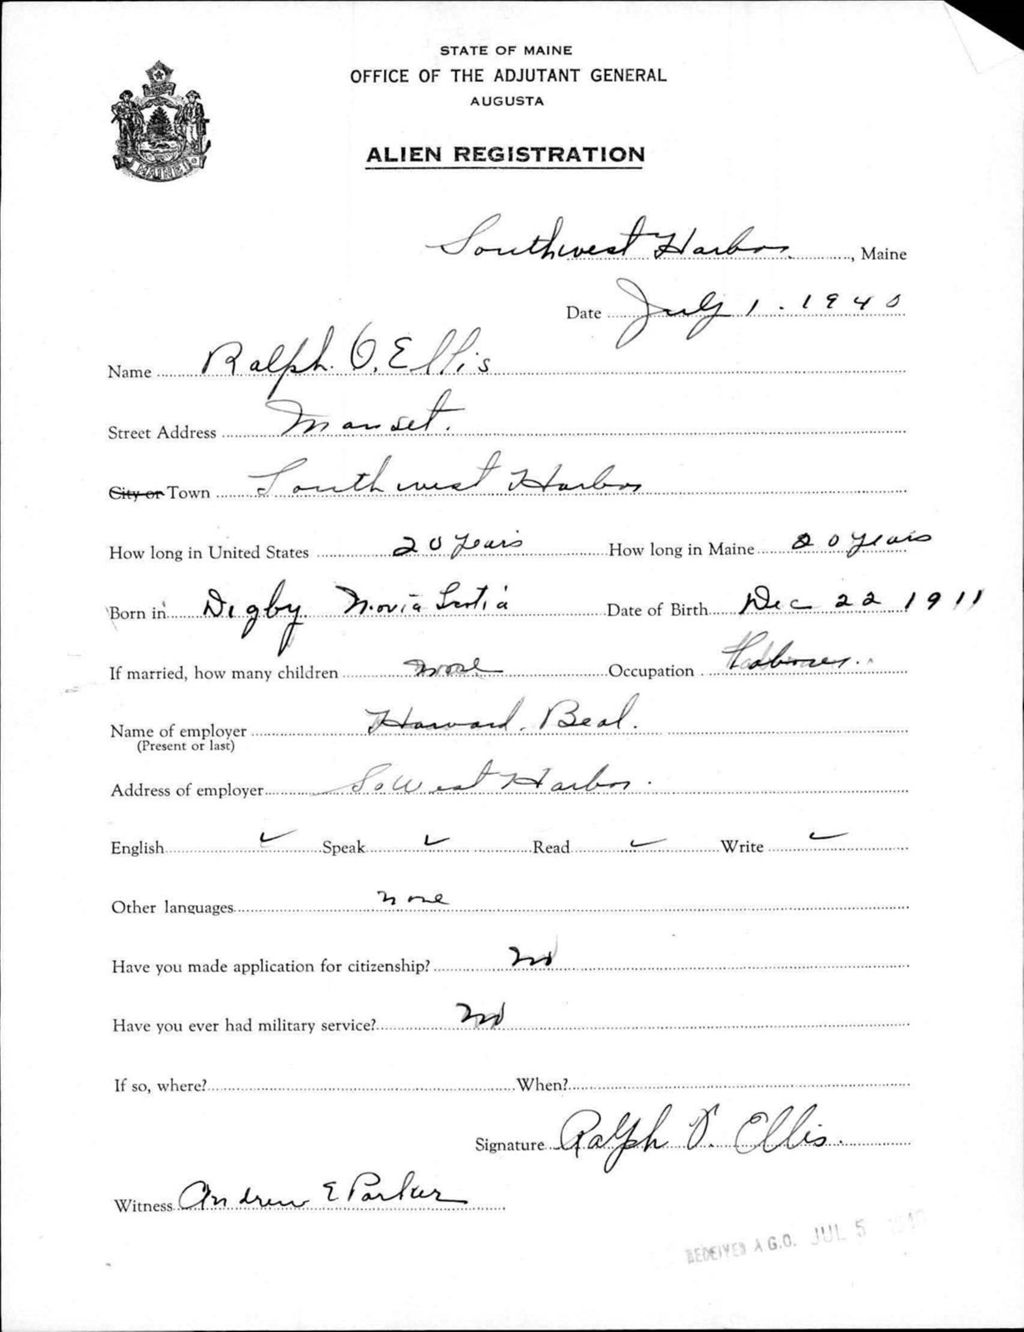 STATE OF MAINE
OFFICE OF THE ADJUTANT GENERAL
AUGUSTA
ALIEN REGISTRATION
MAINE
Southwest Harbor, Maine
Date July 1. 1940
Name Ralph. O. Ellis
Street Address Manset.
City or Town Southwest Harbor
How long in United States 20 years How long in Maine 20 years
Born in Digby Novia Scotia Date of Birth Dec 22 1911
If married, how many children none Occupation Laborer.
Name of employer Harvard. Beal.
(Present or last)
Address of employer So West Harbor.
English ✓ Speak ✓ Read ✓ Write ✓
Other languages none
Have you made application for citizenship? No
Have you ever had military service? No
If so, where? When?
Signature Ralph O. Ellis.
Witness Andrew E Parker
RECEIVED A.G.O. JUL 5 1940